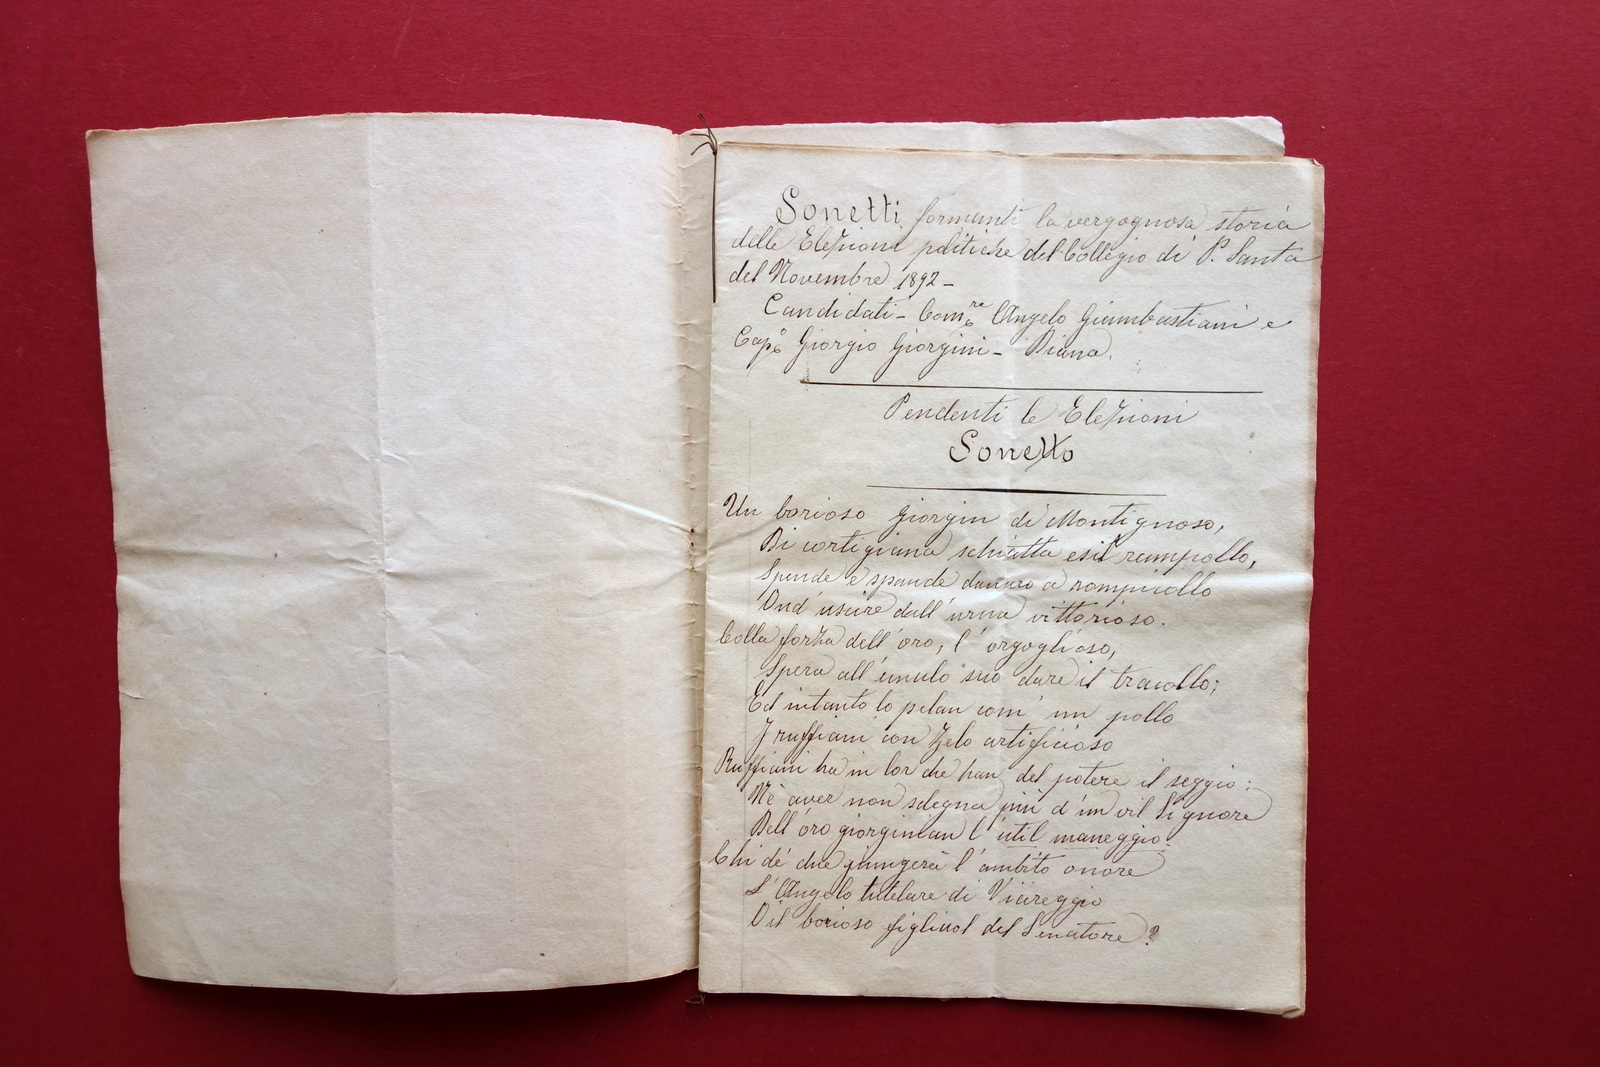 Sonetti formanti la vergognosa storia
delle Elezioni politiche del Collegio di P. Santa
del Novembre 1892 -
Candidati - Comre Angelo Giambastiani e
Capo Giorgio Giorgini - Diana.
Pendenti le Elezioni
Sonetto
Un borioso Giorgin di Montignoso,
Di cortigiana schiatta esil rampollo,
Spende e spande danaro a rompicollo
Ond' uscire dall' urna vittorioso.
Colla forza dell' oro, l' orgoglioso,
Spera all' emulo suo dare il tracollo;
Ed intanto lo pelan com' un pollo
I ruffiani con zelo artificioso
Ruffiani ha in lor che han del potere il seggio:
Nè aver non sdegna più d' un vil Signore
Dell' oro giorginian l' util maneggio.
Chi de' due giungerà l' ambito onore
L' Angelo tutelare di Viareggio
O il borioso figliuol del Senatore?